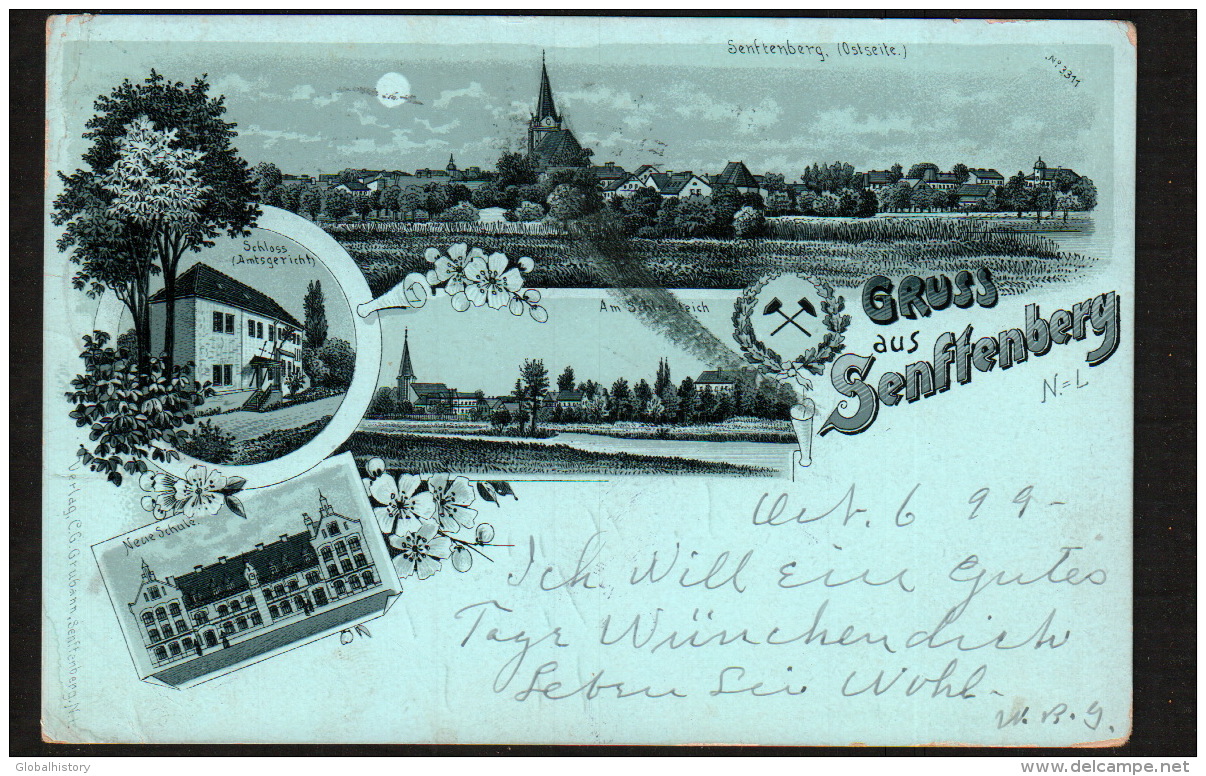 Senftenberg. (Ostseite.)
No 3311
Schloss
(Amtsgericht)
Am Schlossteich
GRUSS
aus
Senftenberg
N.=L
Neue Schule.
Verlag, C.G. Grubann, Senftenberg, N.-L.
Oct. 6 99-
Ich Will Ein Gutes
Tage Wünchen dich
Leben Sei Wohl-
W. B. G.
Globalhistory
http://www.delcampe.net